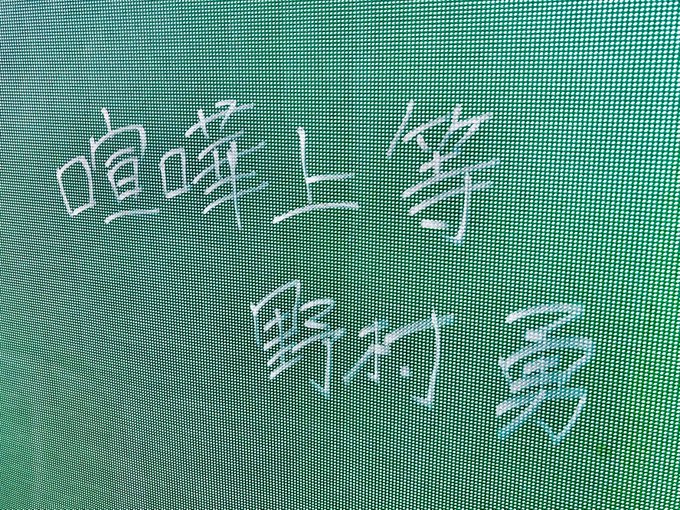 喧嘩上等
野村勇